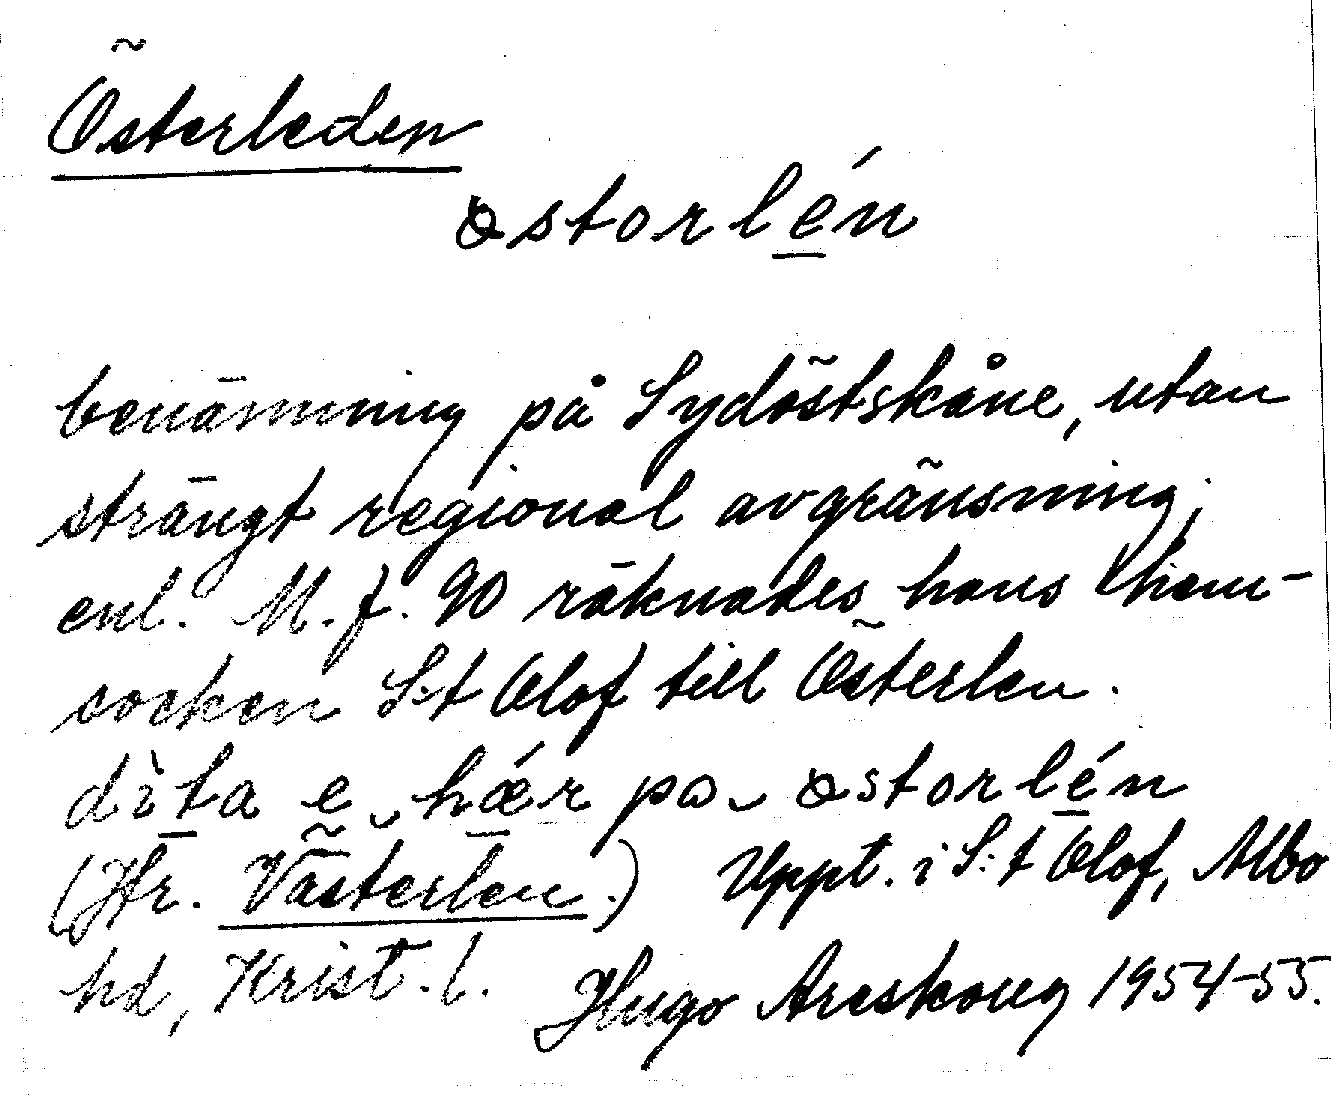 Österleden
østorlén
benämning på Sydöstskåne, utan
strängt regional avgränsning;
enl. M. f. 90 räknades hans hem-
socken S:t Olof till Österlen.
dìta e hǽr pɑ østorlén
(Jfr. Västerlen.) Uppt. i S:t Olof, Albo
hd, Krist. l. Hugo Areskoug 1954-55.